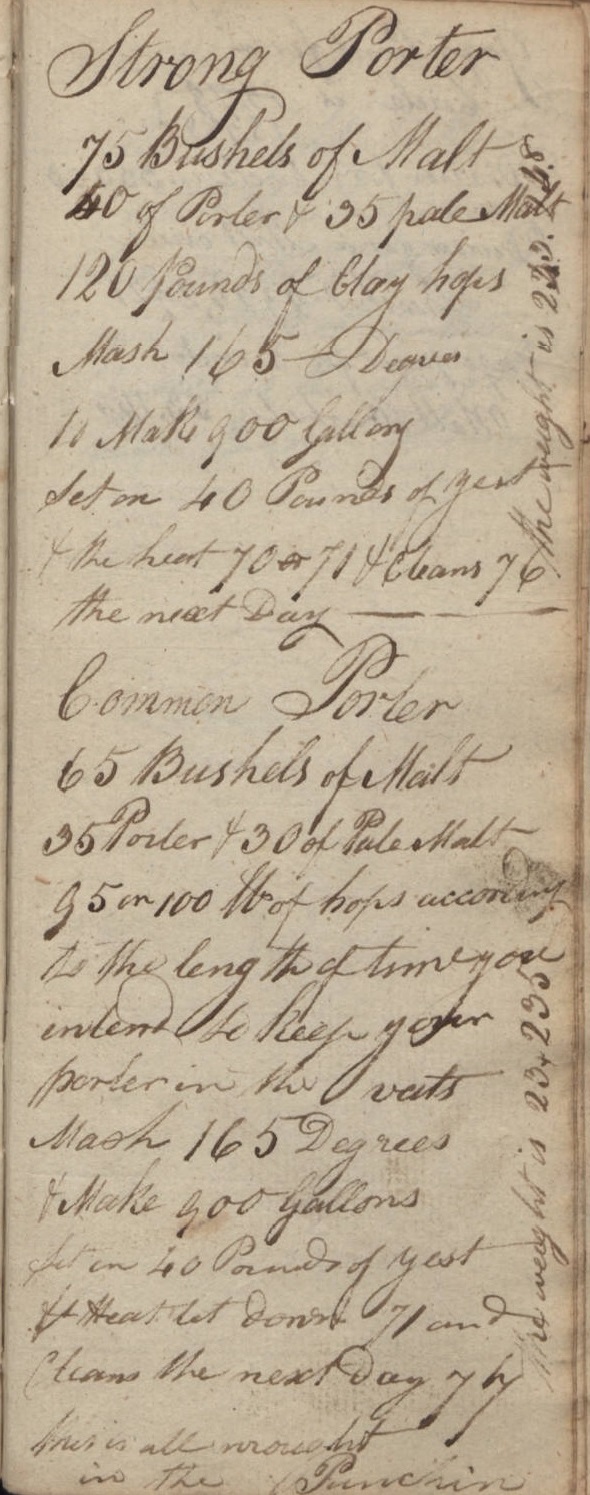 Strong Porter
75 Bushels of Malt
40 of Porter & 35 pale Malt
120 Pounds of Clay hops
Mash 165 Degrees
to Make 900 Gallons
Set on 40 Pounds of yest
& the heat 70 or 71 & Cleans 76
the next Day
The weight is
Common Porter
65 Bushels of Malt
35 Porter & 30 of Pale Malt
95 or 100 lb of hops according
to the length of time you
intend to keep your
porter in the vats
Mash 165 Degrees
& Make 900 Gallons
Set on 40 Pounds of yest
& Heat let down 71 and
Cleans the next Day
this is all wrought
in the Punchin
The weight is 23 & 235